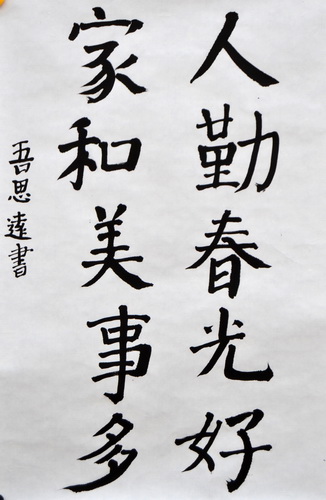 人勤春光好
家和美事多
吾思達書